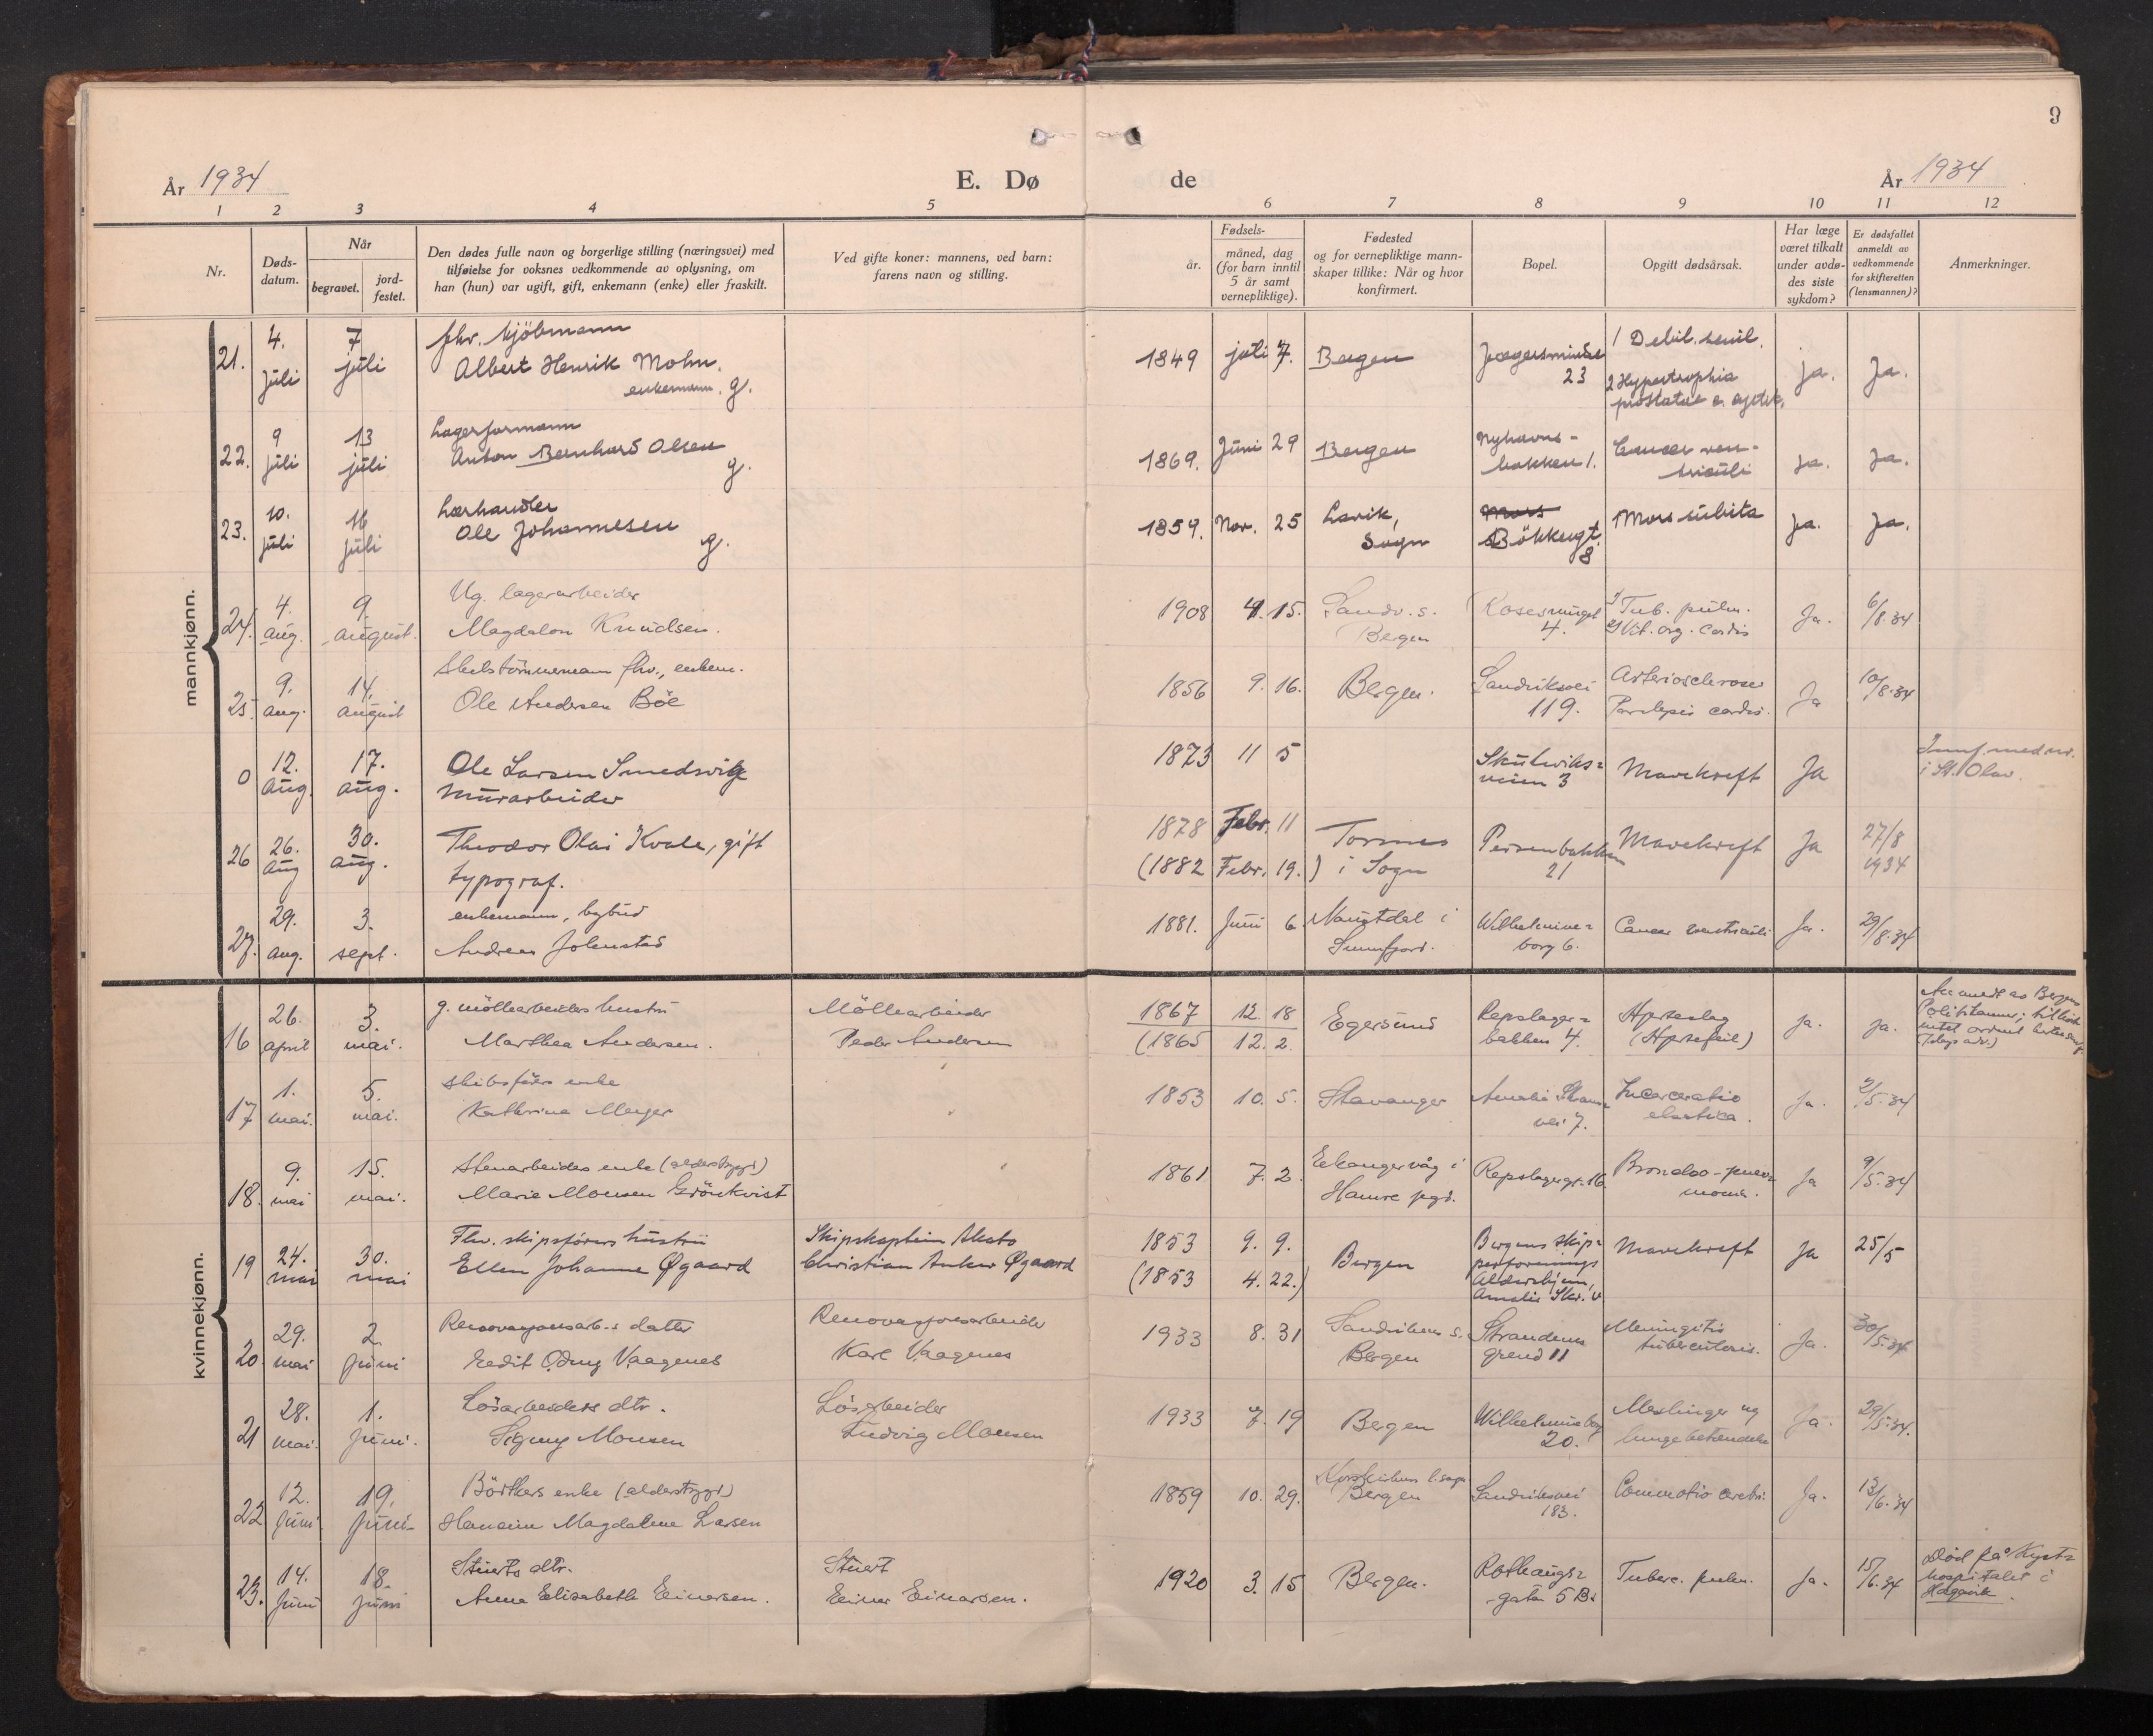 9
År 1934
E. Dø de
År 1934
1 2 3 4 5 6 7 8 9 10 11 12
Nr.
Døds-
datum.
Når
begravet.
jord-
festet.
Den dødes fulle navn og borgerlige stilling (næringsvei) med
tilføielse for voksnes vedkommende av oplysning, om
han (hun) var ugift, gift, enkemann (enke) eller fraskilt.
Ved gifte koner: mannens, ved barn:
farens navn og stilling.
Fødsels-
år.
måned, dag
(for barn inntil
5 år samt
vernepliktige).
Fødested
og for vernepliktige mann-
skaper tillike: Når og hvor
konfirmert.
Bopel.
Opgitt dødsårsak.
Har læge
været tilkalt
under avdø-
des siste
sykdom?
Er dødsfallet
anmeldt av
vedkommende
for skifteretten
(lensmannen)?
Anmerkninger.
mannkjønn.
21. 4. juli 7 juli
fhv. kjöbmann
Albert Henrik Mohn.
enkemann. g.
1849 juli 7. Bergen
Jægersminde
23
1 Debil. senil.
2 Hypertrophia
prostatae
ja. Ja.
22. 9 juli 13 juli
Lagerformann
Anton Bernhard Olsen
g.
1869. Juni 29 Bergen
Nyhavns-
bakken 1.
Cancer ven-
triculi
ja. Ja.
23. 10. juli 16 juli
Lærhandler
Ole Johannesen
g.
1859. Nov. 25
Lavik,
Sogn
Mors
Bökkergt.
8
Mors subita
Ja. Ja.
24. 4. aug. 9. august.
Ug. lagerarbeider
Magdalon Knudsen.
1908 4. 15.
Sandv. s.
Bergen
Rosesmuget
4.
1) Tub. pulm.
2) Vit. org. cordis
Ja. 6/8.34
25. 9. aug. 14. august
Skibstömmermann fhv., enkem.
Ole Andersen Böe
1856 9. 16. Bergen.
Sandviksvei
119.
Arteriosclerose
Paralysis cordis.
Ja 10/8.34
0 12. aug. 17. aug.
Ole Larsen Smedsvik
murarbeider
1873 11 5
Skuteviks=
veien 3
Mavekreft
Ja
i St. Olav.
26 26. aug 30. aug.
Theodor Olai Kvale, gift
typograf.
1878 Febr. 11
(1882 Febr. 19.)
i Sogn
Persenbakken
21
Mavekreft
Ja 27/8
1934
27. 29. aug. 3. sept.
enkemann, bybud
Andreas Jolmstad
1881. Juni 6.
Naustdal i
Sunnfjord.
Wilhelmine=
borg 6.
Cancer ventriculi
Ja. 29/8.34
kvinnekjønn.
16 26. april 3. mai.
g. möllearbeiders hustru
Marthea Andersen.
Möllearbeider
Peder Andersen
1867 12. 18
(1865 12. 2.
Egersund
Repslager=
bakken 4.
Hjerteslag
(Hjertefeil)
ja. ja.
Anmeldt av Bergens
Politikammer;
17 1. mai. 5. mai.
Skibsförers enke
Kathrine Meyer
1853 10. 5. Stavanger
Amalie Skrams
vei 7.
Incarceratio
Ja. 2/5.34
18. 9. mai 15. mai.
Stenarbeiders enke (alderstrygd)
Marie Monsen Grönkvist
1861 7. 2.
Eikangervåg i
Hamre pgd.
Repslagergt. 16.
Broncho-pneu=
moni.
Ja 9/5.34
19 24. mai 30. mai
Fhv. skipsförers hustru
Ellen Johanne Øgaard
Skipskaptein
Christian Anker Øgaard
1853 9. 9.
(1853 4. 22.)
Bergen
Bergens skip=
perforenings
Aldershjem,
Amalie Skr. v
Mavekreft
Ja 25/5
20 29. mai 2. juni
Renovasjonsarb.s datter
Edit Odny Vaagenes
Renovasjonsarbeider
Karl Vaagenes
1933 8. 31
Sandvikens s.
Bergen
Strandens
grend 11
Meningitis
tuberculosis.
Ja. 30/5.34
21 28. mai. 1. juni.
Lösarbeiders dtr.
Signy Monsen
Lösarbeider
Ludvig Monsen
1933 7. 19 Bergen
Wilhelmineborg
20.
Meslinger og
lungebetendelse
Ja. 29/5.34.
22 12. juni. 19. juni-
Bödkers enke (alderstrygd)
Magdalene Larsen
1859 10. 29.
Korskirkens sogn
Bergen
Sandviksvei
183.
Commotio cerebri.
Ja. 13/6.34
23. 14. juni 18. juni
Stuerts dtr.
Anna Elisabeth Einarsen.
Stuert
Einar Einarsen.
1920 3. 15 Bergen.
Rothaugs=
gaten 5 B.
Tuberc. pulm.
Ja. 15/6.34
Död på Kyst=
hospitalet i
Hagevik.